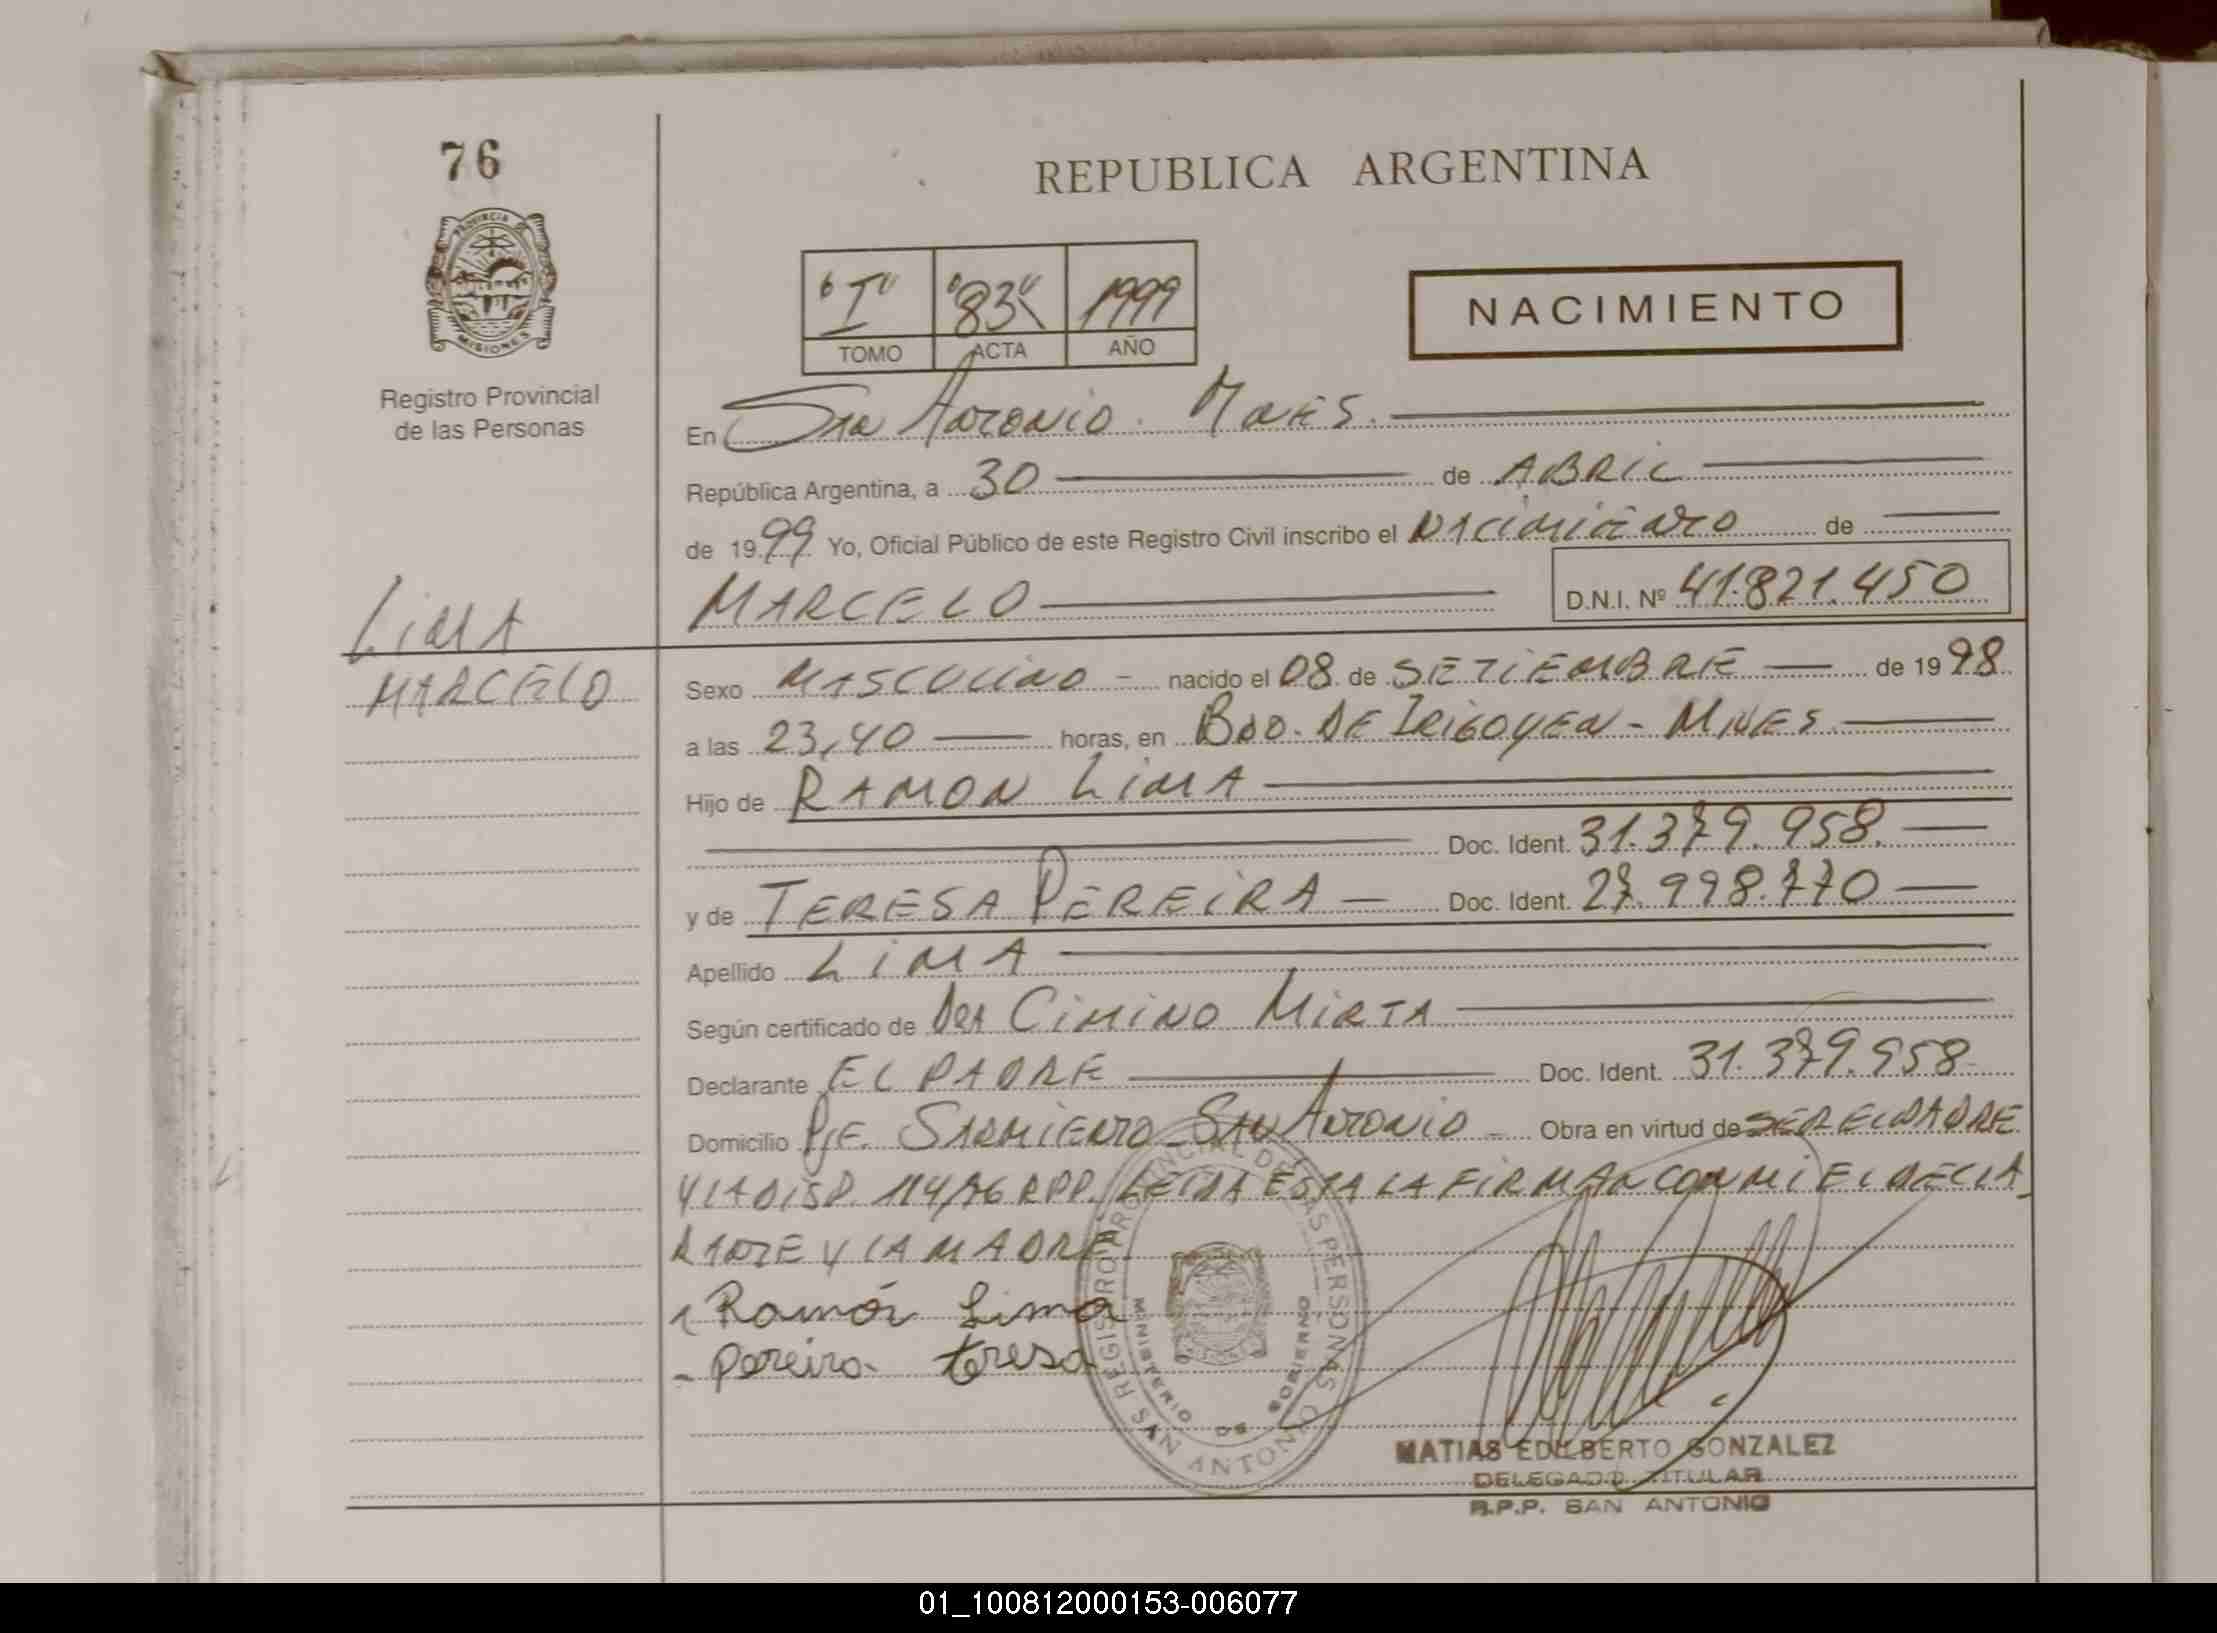 76
REPUBLICA ARGENTINA
PROVINCIA DE
MISIONES
Registro Provincial
de las Personas
"I" "83" 1999
TOMO ACTA AÑO
NACIMIENTO
En San Antonio. Mnes.
República Argentina, a 30 de ABRIL
de 1999 Yo, Oficial Público de este Registro Civil inscribo el NACIMIENTO de
MARCELO D.N.I. Nº 41.821.450
LIMA
MARCELO
Sexo MASCULINO - nacido el 08 de SETIEMBRE de 1998
a las 23,40 horas, en Bdo. DE IRIGOYEN - MNES
Hijo de RAMON LIMA
Doc. Ident. 31.379.958.
y de TERESA PEREIRA Doc. Ident. 27.998.770
Apellido LIMA
Según certificado de Dra CIMINO MIRTA
Declarante EL PADRE Doc. Ident. 31.379.958
Domicilio Pje. SARMIENTO - SAN ANTONIO - Obra en virtud de SER EL PADRE
Y LA DISP. 114/96 RPP. LEIDA ESTA LA FIRMAN CONMI EL DECLA
RANTE Y LA MADRE.
Ramón Lima
- Pereira teresa
REGISTRO PROVINCIAL DE LAS PERSONAS
MINISTERIO DE GOBIERNO
SAN ANTONIO
MATIAS EDILBERTO GONZALEZ
DELEGADO TITULAR
R.P.P. SAN ANTONIO
01_100812000153-006077